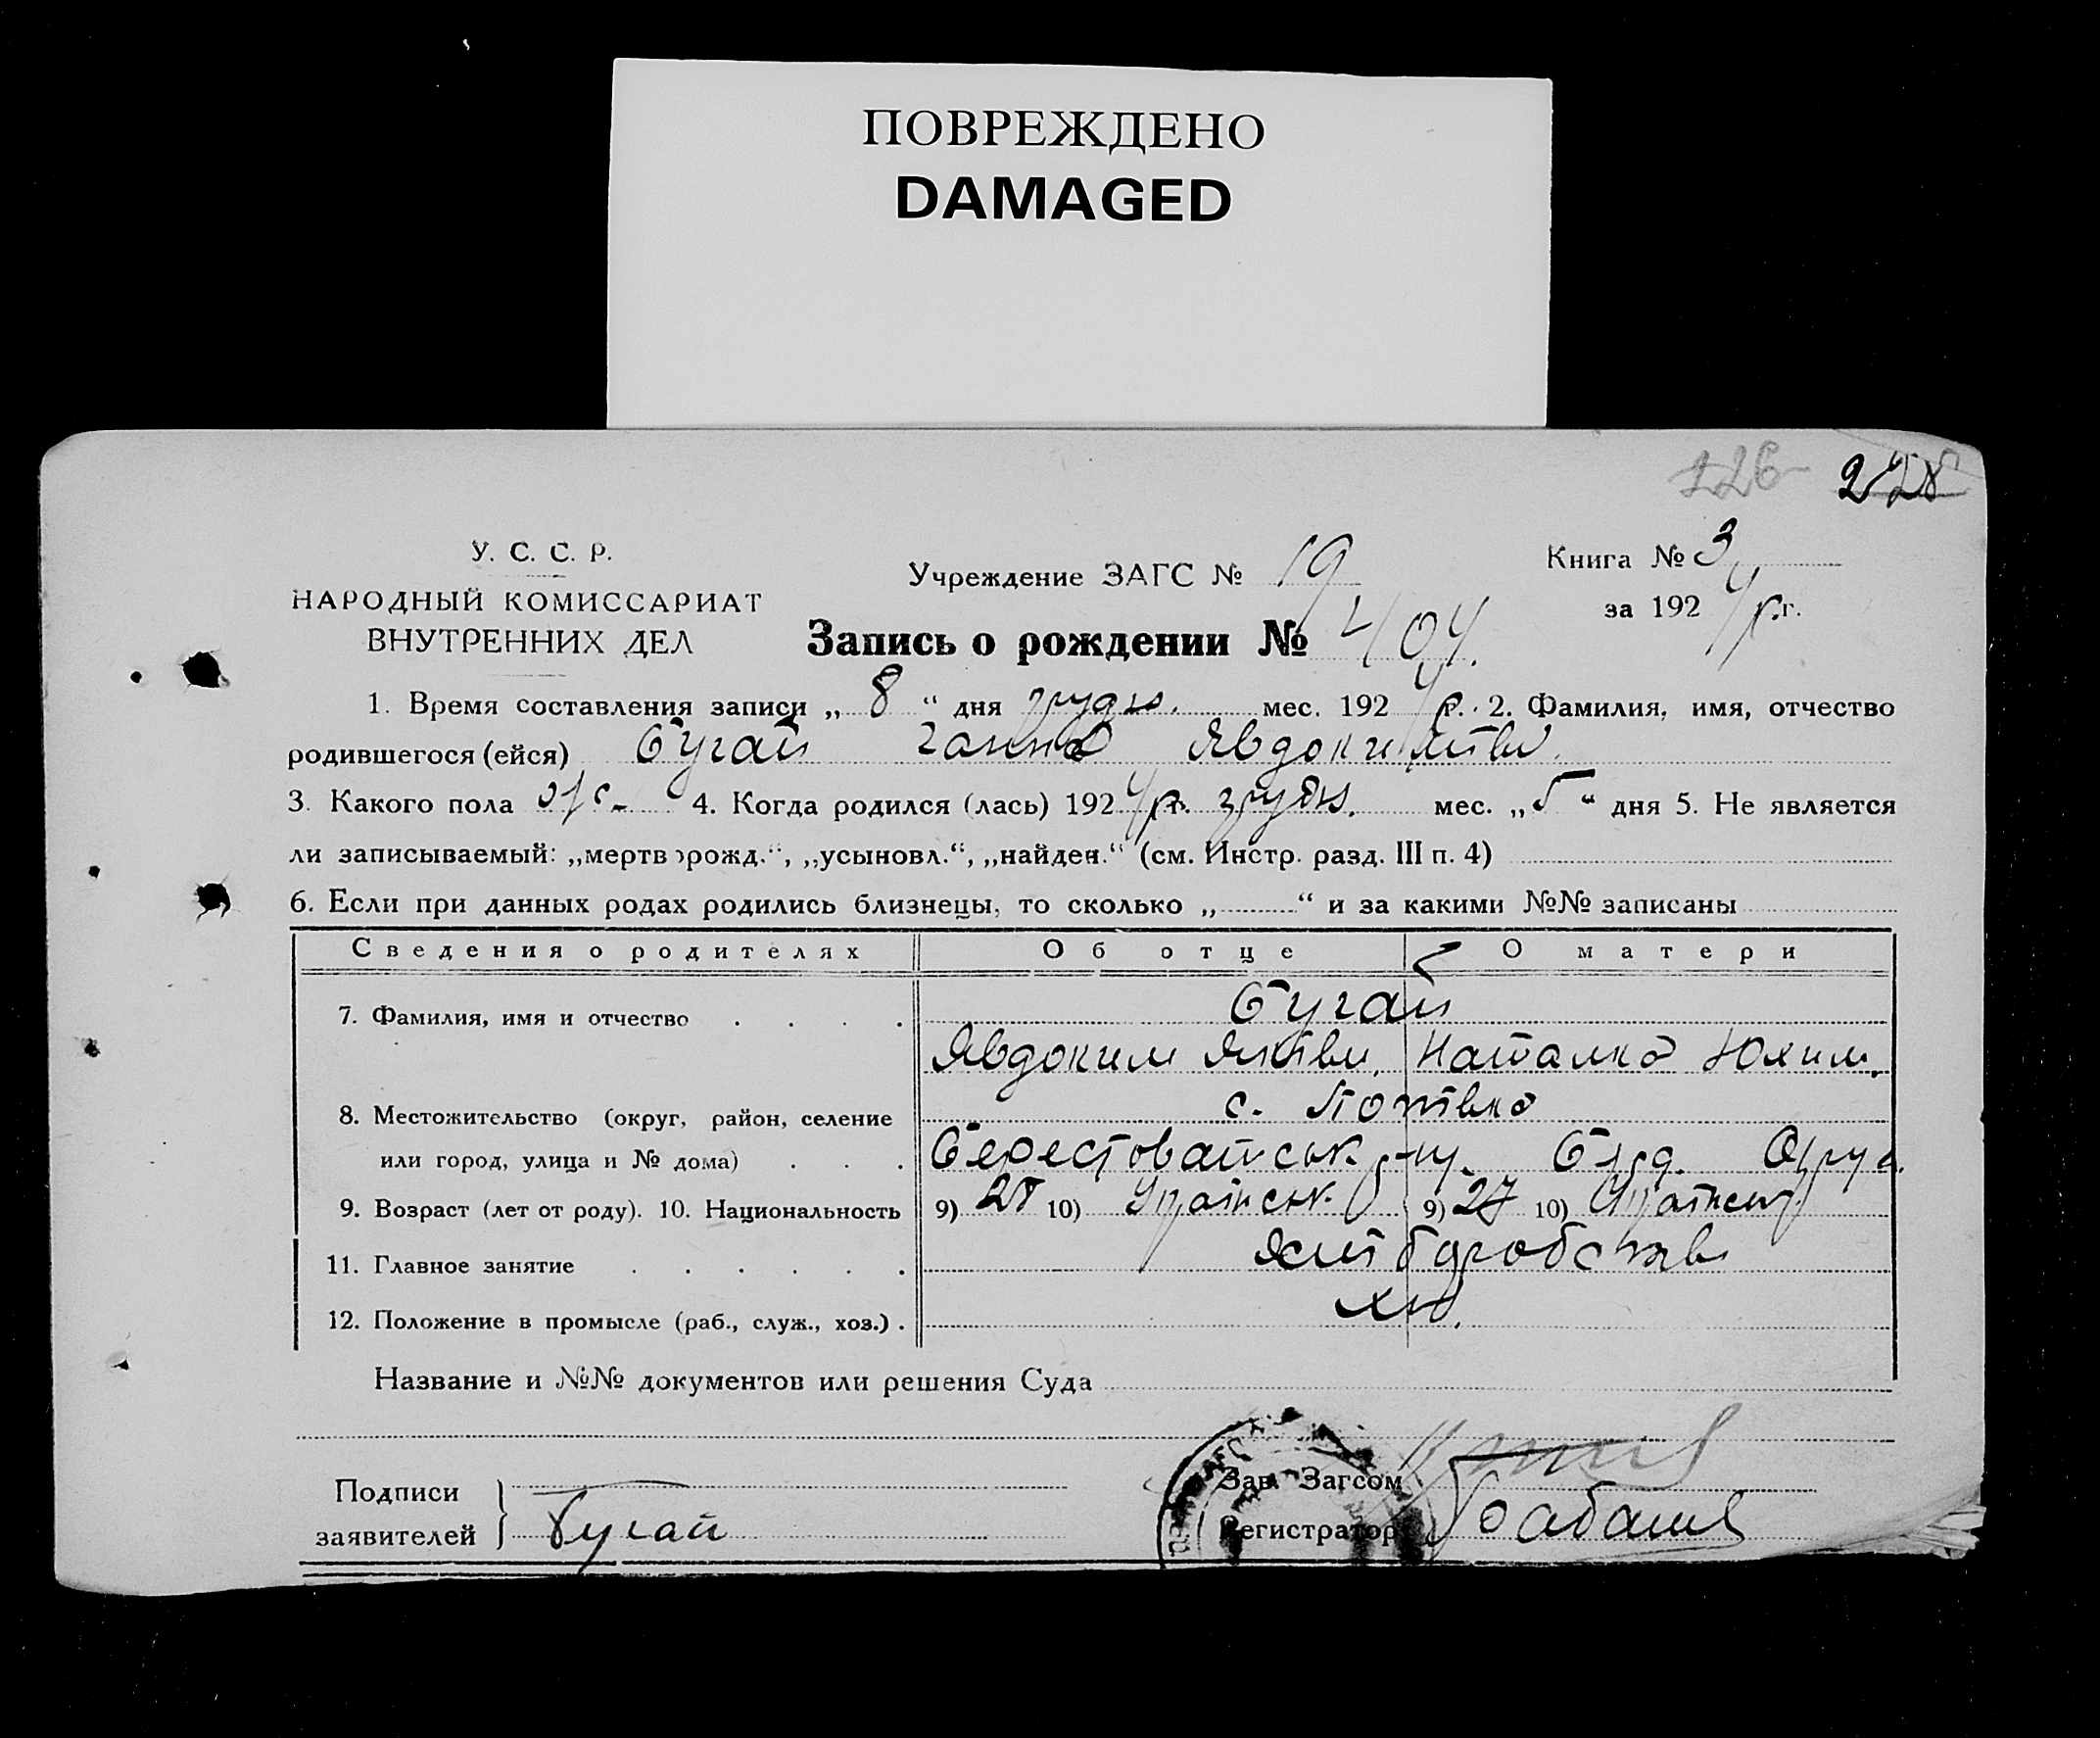 ПОВРЕЖДЕНО
DAMAGED
226 228
У. С. С. Р.
НАРОДНЫЙ КОМИССАРИАТ
ВНУТРЕННИХ ДЕЛ
Учреждение ЗАГС № 19
Книга № 3
за 1924р.г.
Запись о рождении № 404.
1. Время составления записи „ 8 “ дня грудн. мес. 1924р. 2. Фамилия, имя, отчество
родившегося (ейся) Бугай Ганна Явдоким
3. Какого пола ж. 4. Когда родился (лась) 1924р. грудн. мес. „5“ дня 5. Не является
ли записываемый: „мертворожд.“, „усыновл.“, „найден.“ (см. Инстр. разд. III п. 4)
6. Если при данных родах родились близнецы, то сколько „ “ и за какими №№ записаны
Сведения о родителях Об отце О матери
7. Фамилия, имя и отчество Бугай
Явдоким Наталка Юхим.
8. Местожительство (округ, район, селение с.
или город, улица и № дома) Берестовайськ р-ну. Округ.
9. Возраст (лет от роду). 10. Национальность 9) 28 10) Українськ 9) 27 10) Українськ
11. Главное занятие хліборобство
12. Положение в промысле (раб., служ., хоз.)
Название и №№ документов или решения Суда
Подписи
заявителей
Бугай
Зав. Загсом
Регистратор